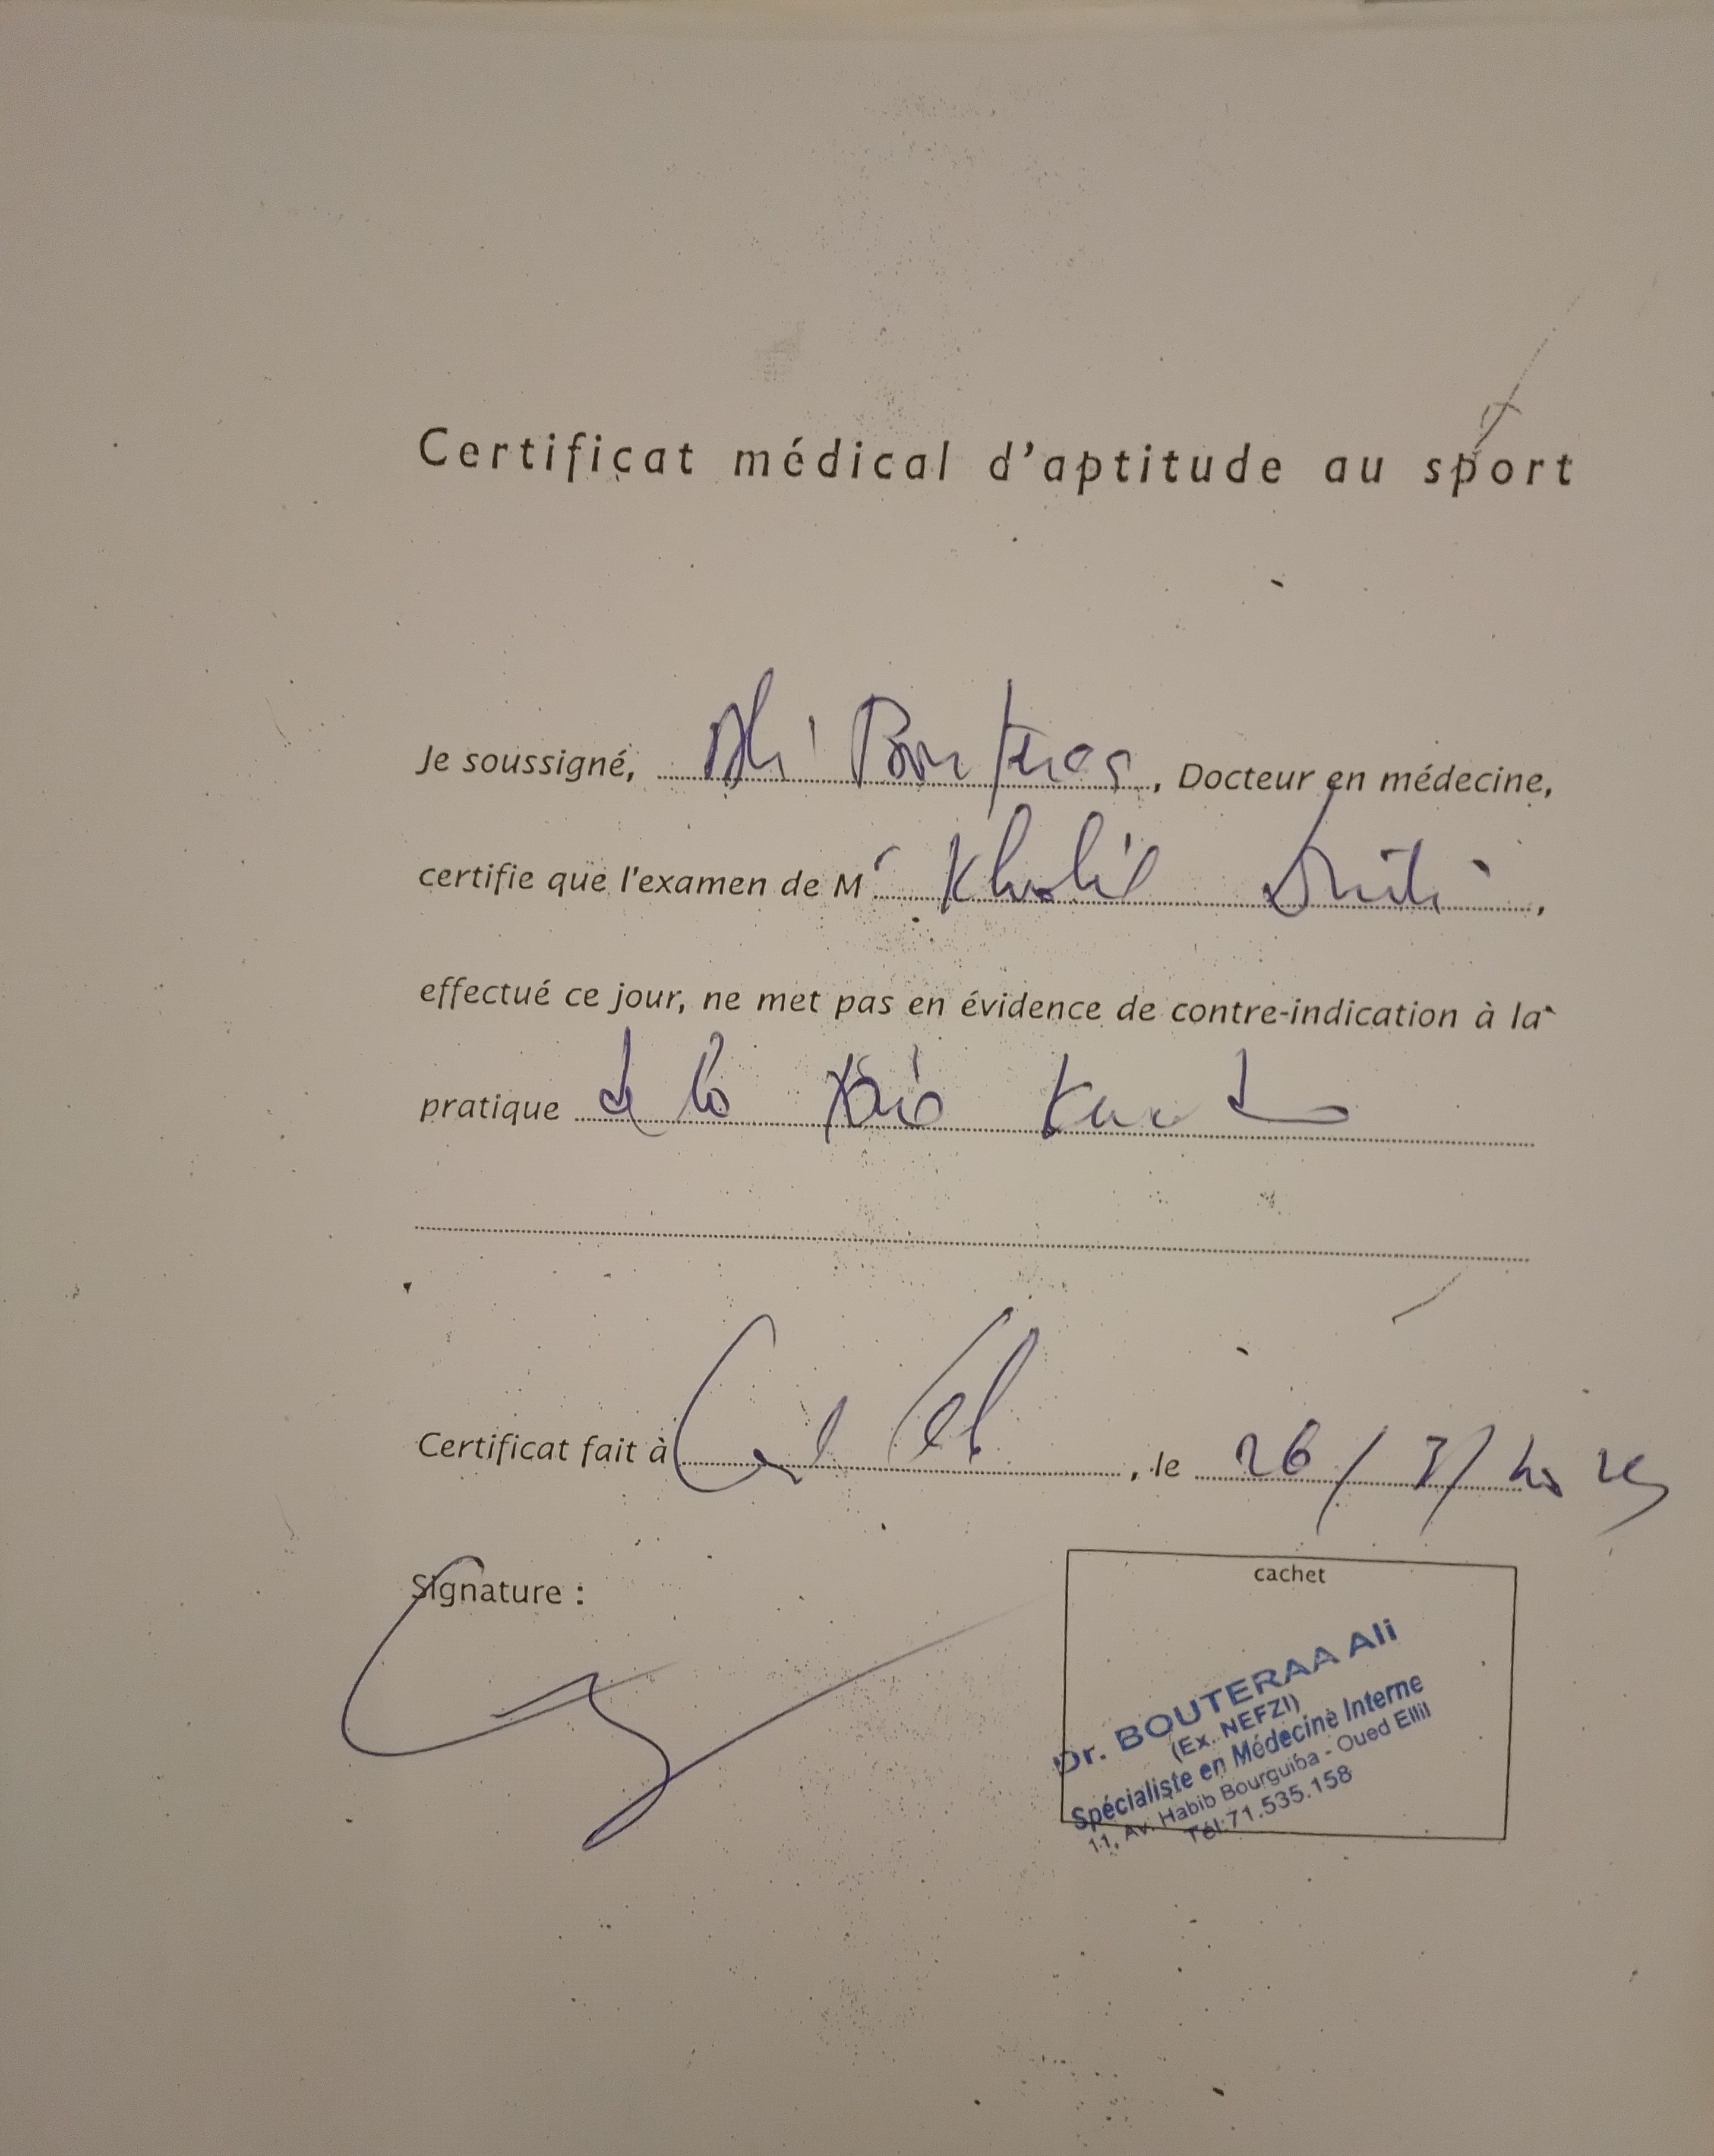 Certificat médical d'aptitude au sport
Je soussigné, Ali Bouteraa, Docteur en médecine,
certifie que l'examen de Mr Khalil,
effectué ce jour, ne met pas en évidence de contre-indication à la
pratique de la
Certificat fait à, le 26/ / 2025
Signature :
cachet
Dr. BOUTERAA Ali
(Ex. NEFZI)
Spécialiste en Médecine Interne
11, Av. Habib Bourguiba - Oued Ellil
Tél:71.535.158